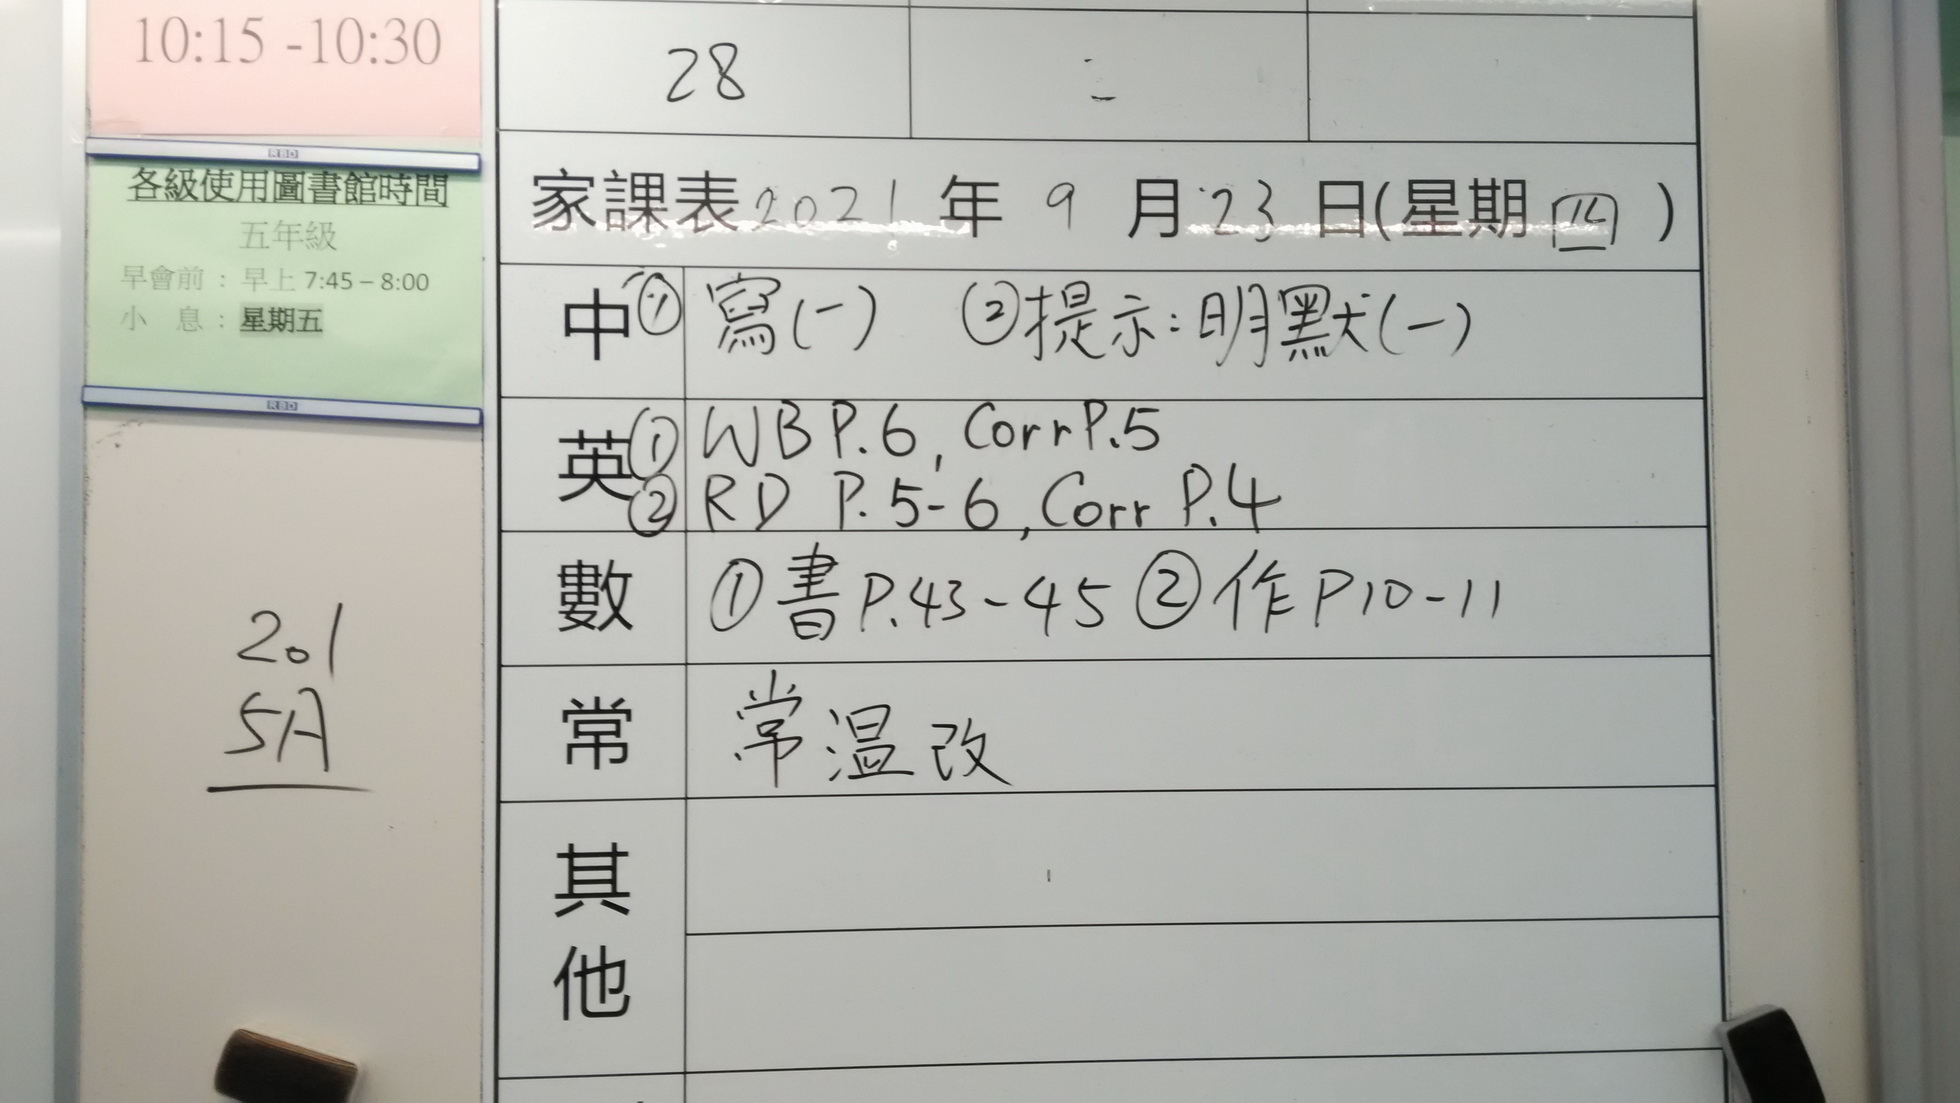 10:15 -10:30
28
RBD
各級使用圖書館時間
五年級
早會前 : 早上 7:45 – 8:00
小 息 : 星期五
RBD
201
5A
家課表 2021 年 9 月 23 日(星期四)
中 ① 寫(一) ②提示:明默(一)
英 ① WB P.6, Corr P.5
② RD P.5-6, Corr P.4
數 ① 書 P.43-45 ② 作 P10-11
常 常溫改
其他